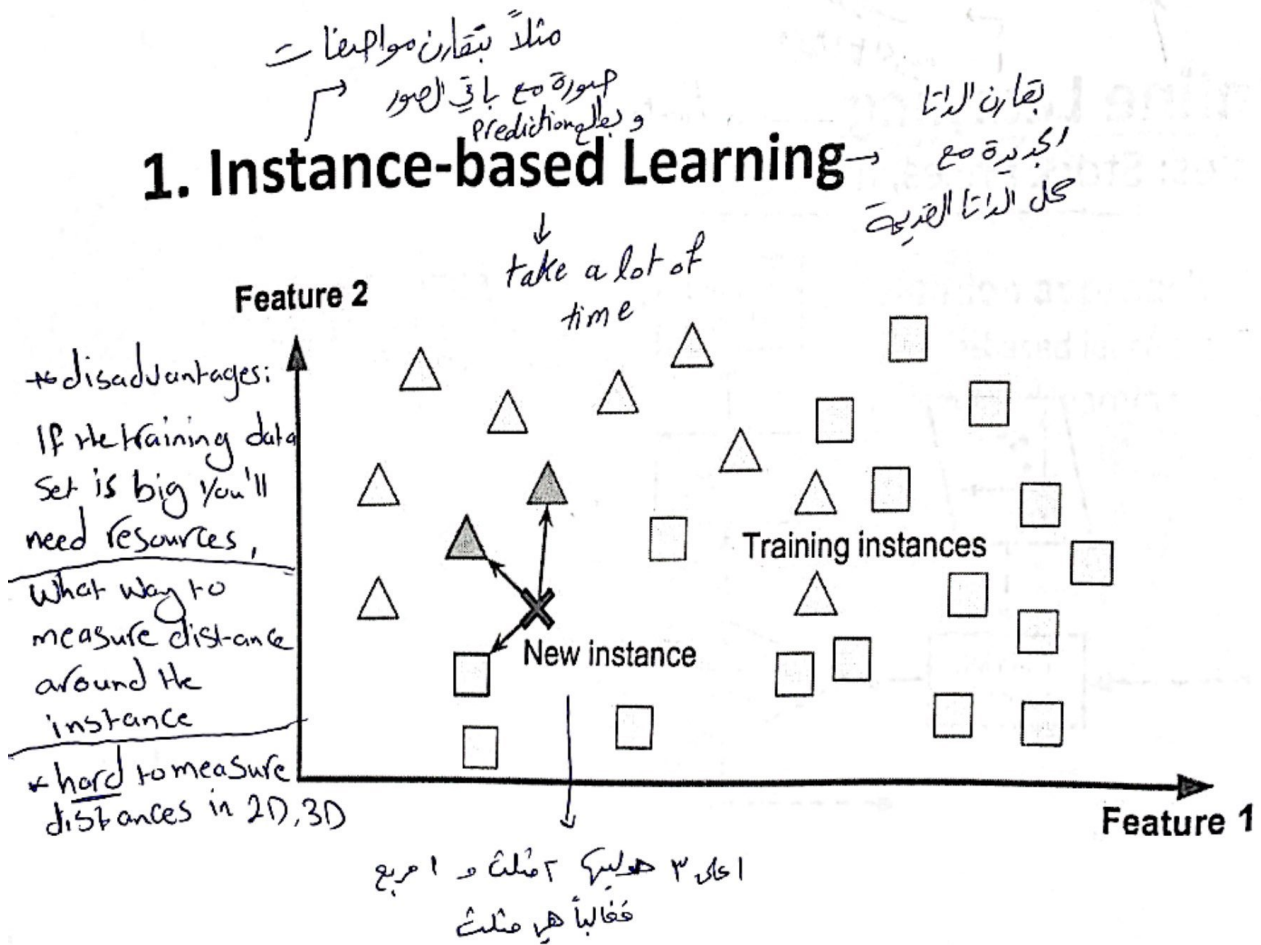 مثلاً بتقارن مواصفات
صورة مع باقي الصور
و بطلع prediction
1. Instance-based Learning
بقارن الداتا
الجديدة مع
كل الداتا القديمة
take a lot of
time
Feature 2
disadvantages:
If the training data
set is big you'll
need resources,
What way to
measure distance
around the
instance
* hard to measure
distances in 2D,3D
Training instances
New instance
Feature 1
٣ حوليها ٢ مثلث و ١ مربع
فغالباً هي مثلث